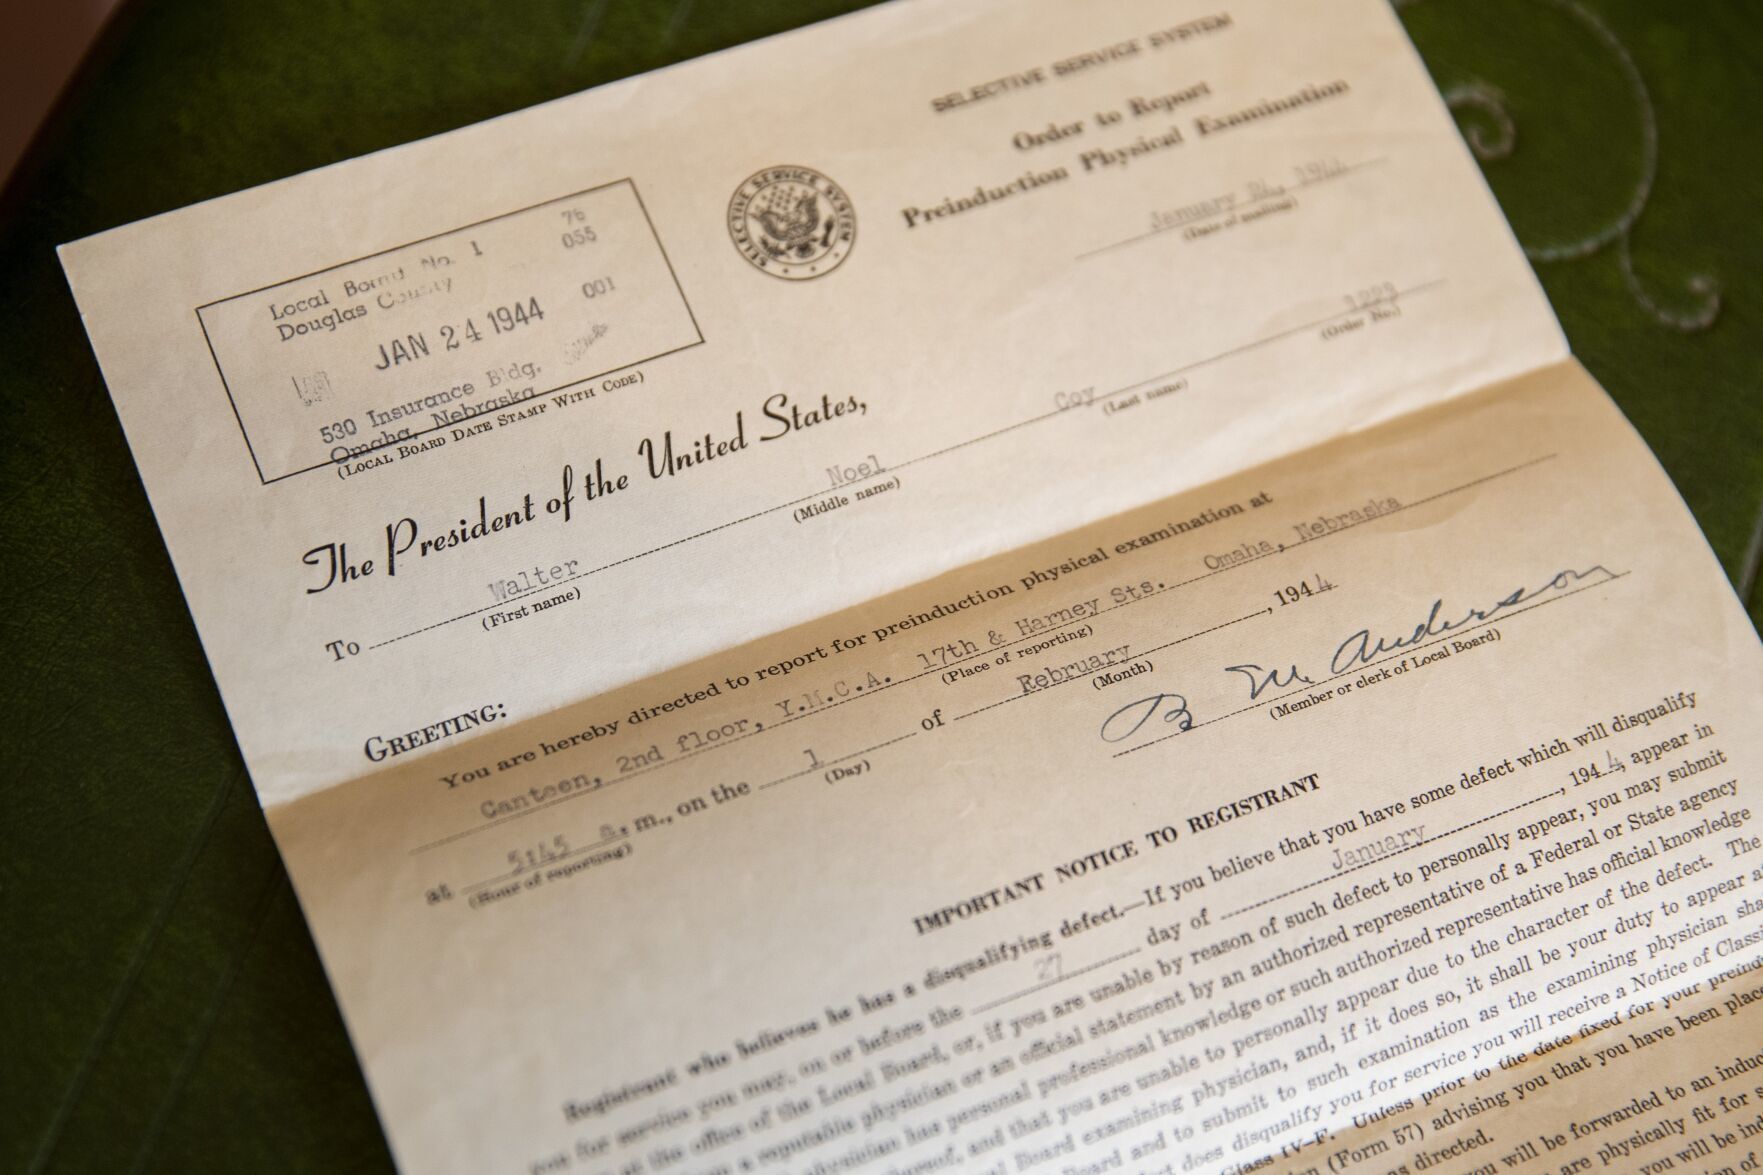 SELECTIVE SERVICE SYSTEM
Order to Report
Preinduction Physical Examination
January 24, 1944
(Date of mailing)
SELECTIVE SERVICE SYSTEM
Local Board No. 1 76
Douglas County 055
JAN 24 1944 001
530 Insurance Bldg.
Omaha, Nebraska
(LOCAL BOARD DATE STAMP WITH CODE)
(Order No.)
The President of the United States,
To Walter Noel Coy
(First name) (Middle name) (Last name)
GREETING:
You are hereby directed to report for preinduction physical examination at
Canteen, 2nd floor, Y.M.C.A. 17th & Harney Sts. Omaha, Nebraska
(Place of reporting)
at 5:45 a. m., on the 1 of Rebruary, 1944
(Hour of reporting) (Day) (Month)
B M Anderson
(Member or clerk of Local Board)
IMPORTANT NOTICE TO REGISTRANT
Registrant who believes he has a disqualifying defect.—If you believe that you have some defect which will disqualify
you for service you may, on or before the 27 day of January, 1944, appear in
at the office of the Local Board, or, if you are unable by reason of such defect to personally appear, you may submit
a reputable physician or an official statement by an authorized representative of a Federal or State agency
physician has personal professional knowledge or such authorized representative has official knowledge
and that you are unable to personally appear due to the character of the defect. The
Board examining physician, and, if it does so, it shall be your duty to appear
Board and to submit to such examination as the examining physician
does disqualify you for service you will receive a Notice of
Class IV-F. Unless prior to the date fixed for your
(Form 57) advising you that you have been
as directed.
will be forwarded to an
are physically fit for
you will be